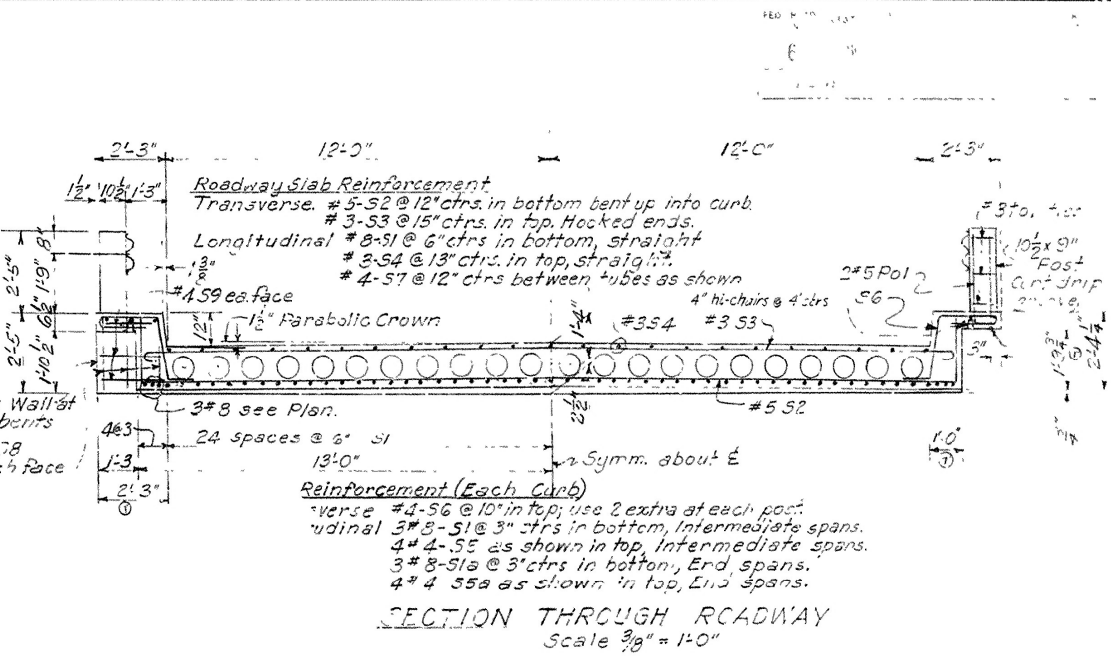 2'-3" 12'-0" 12'-0" 2'-3"
1½" 10½" 1'-3"
Roadway Slab Reinforcement
Transverse. #5-S2 @ 12" ctrs. in bottom bent up into curb.
#3-S3 @ 15" ctrs. in top. Hooked ends.
Longitudinal #8-S1 @ 6" ctrs in bottom, straight
#3-S4 @ 13" ctrs. in top, straight.
#4-S7 @ 12" ctrs between tubes as shown
8"
2'-5" 1'-9"
6½"
2'-5" 1'-10½"
1⅜"
#4 S9 ea. face
12"
1½" Parabolic Crown
1'-4"
#3S4
4" hi-chairs @ 4' ctrs
#3 S3
2#5
S6
10½ x 9"
Post
3"
1'-9¾"
2'-4¼"
Wall at
3#8 see Plan.
2½"
#5 S2
4@3
24 spaces @ 6" S1
face
1'-3
13'-0"
Symm. about ℄
1'-0"
①
2'-3"
①
Reinforcement (Each Curb)
verse #4-S6 @ 10" in top; use 2 extra at each post.
udinal 3#8-S1 @ 3" ctrs in bottom, Intermediate spans.
4#4-S5 as shown in top, Intermediate spans.
3#8-S1a @ 3" ctrs in bottom, End spans.
4#4 S5a as shown in top, End spans.
SECTION THROUGH ROADWAY
Scale ⅜" = 1'-0"